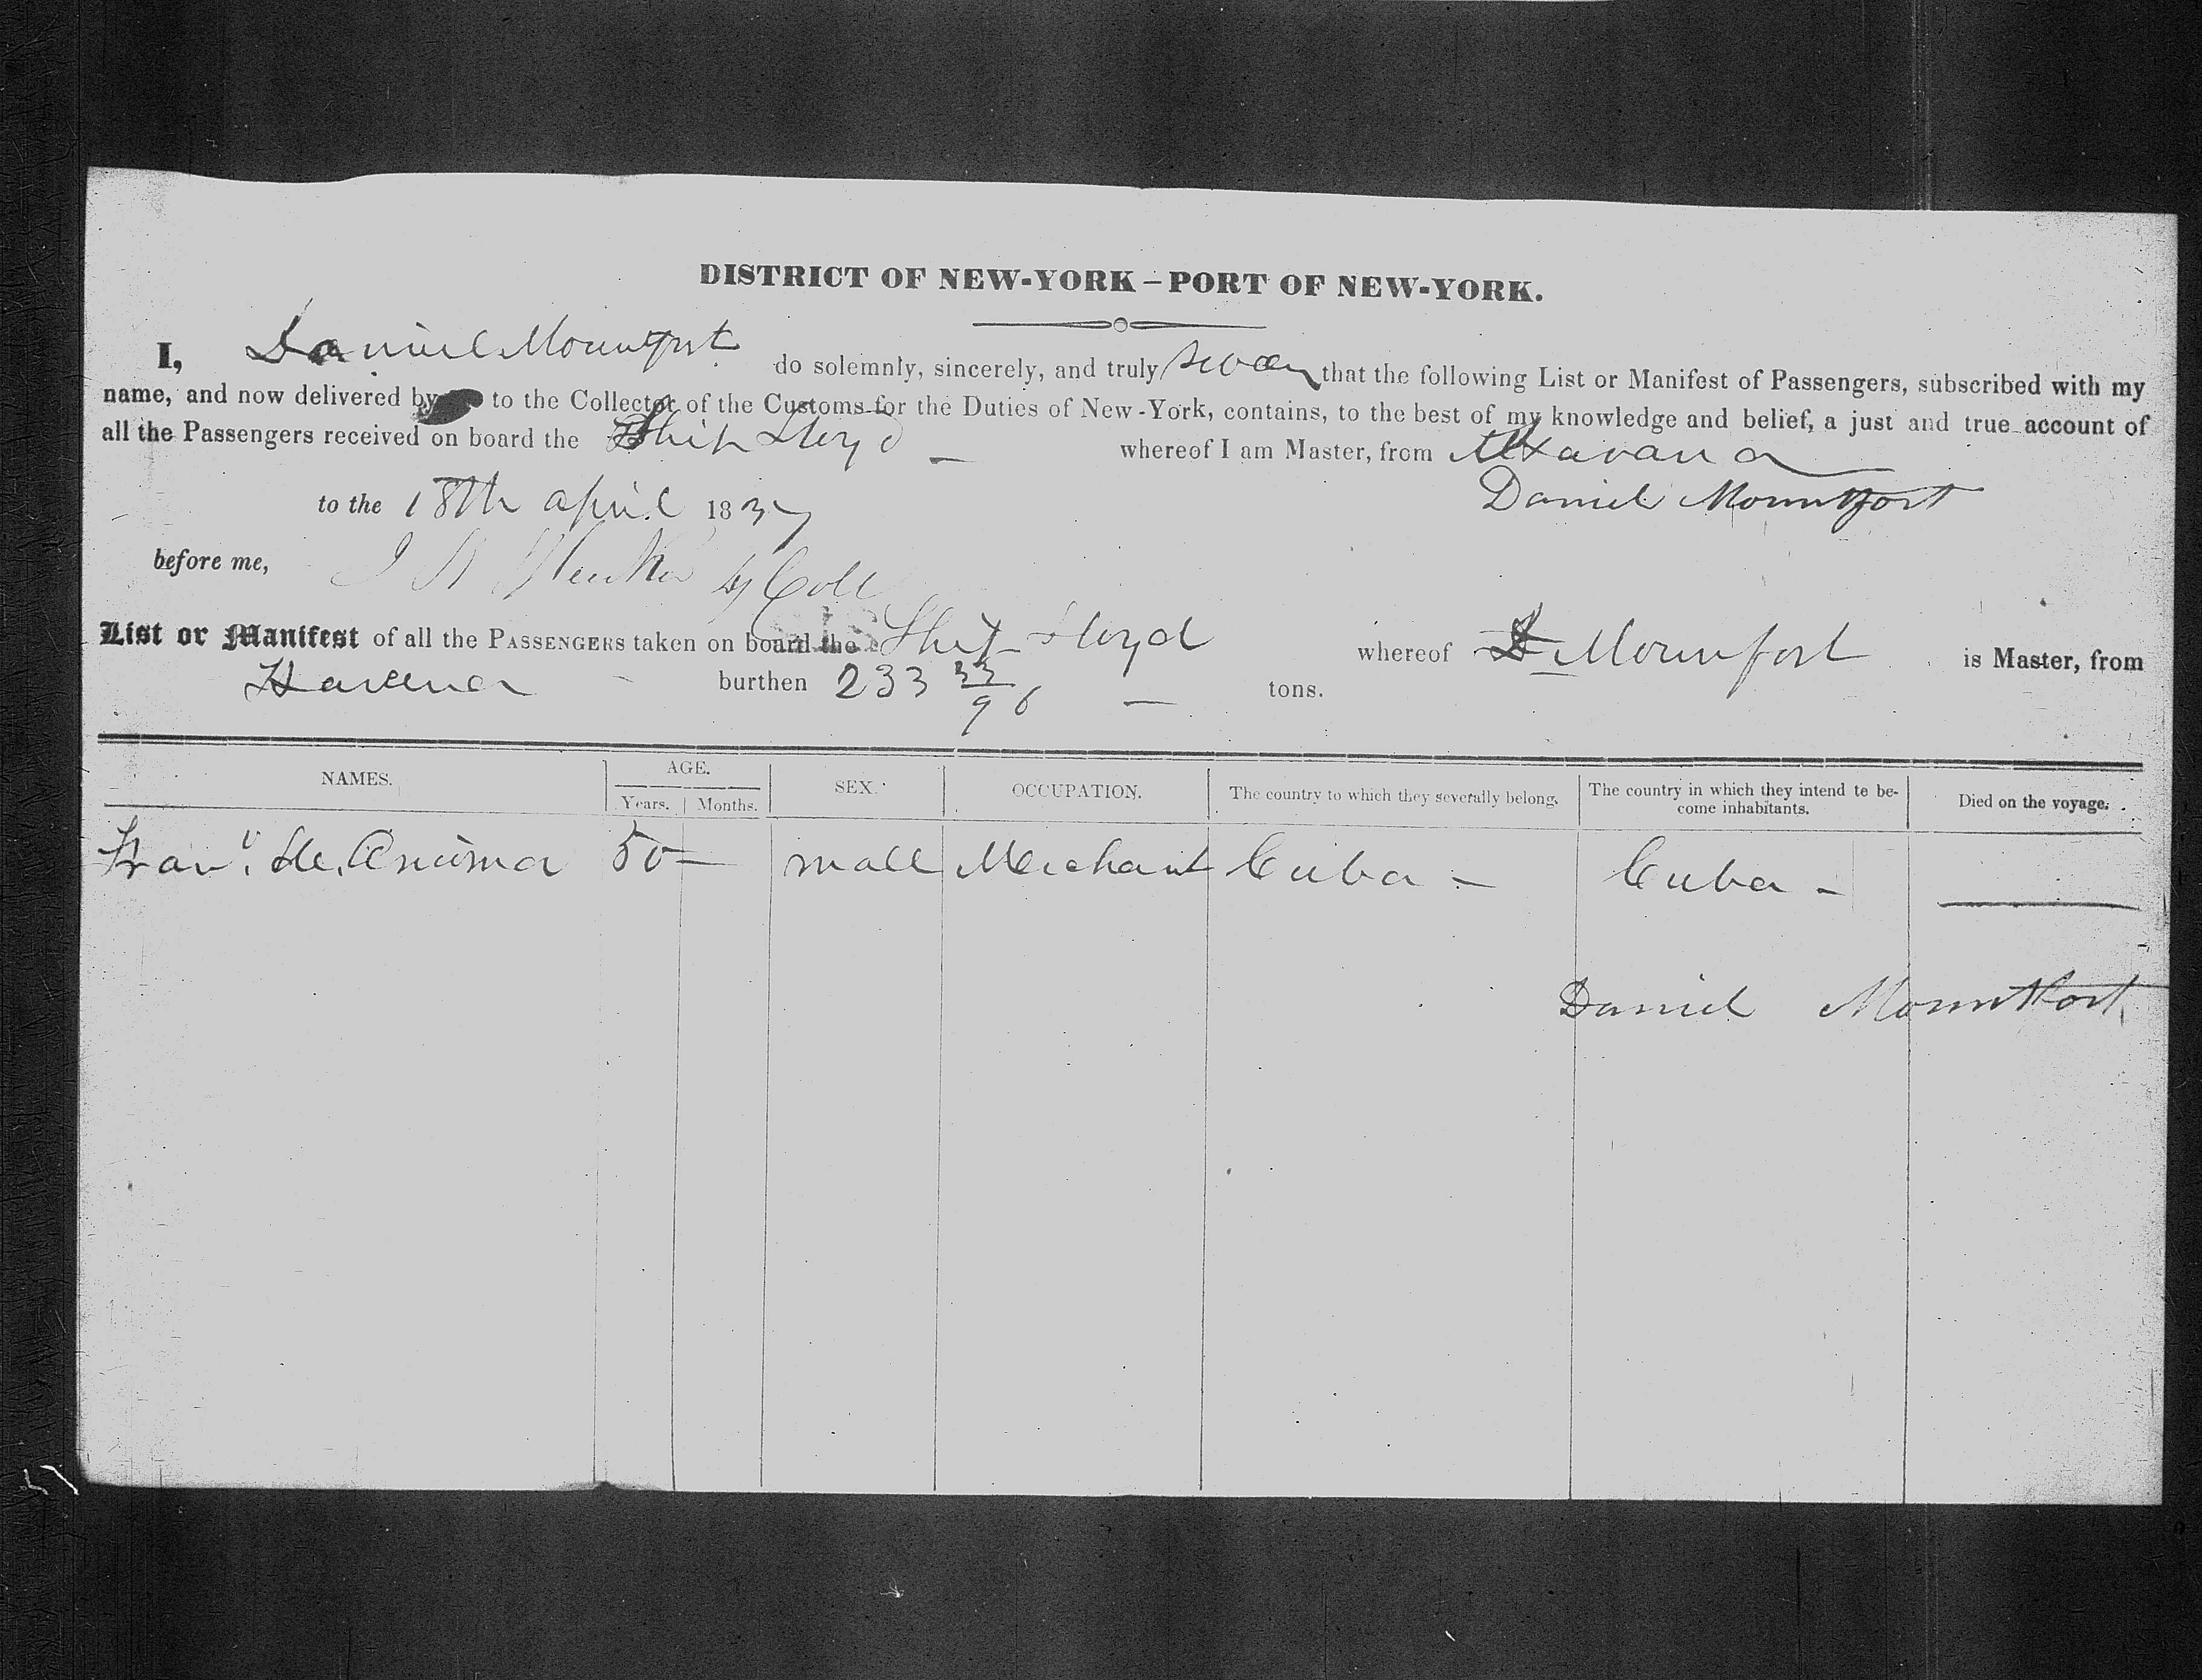 DISTRICT OF NEW-YORK – PORT OF NEW-YORK.
I, Daniel Mountfort do solemnly, sincerely, and truly swear that the following List or Manifest of Passengers, subscribed with my
name, and now delivered by to the Collector of the Customs for the Duties of New-York, contains, to the best of my knowledge and belief, a just and true account of
all the Passengers received on board the Ship Lloyd whereof I am Master, from Havana
to the 18th april 1837 Daniel Mountfort
before me, Coll
List or Manifest of all the PASSENGERS taken on board the Ship Lloyd whereof D Mounfort is Master, from
Havana burthen 233 33/96 tons.
NAMES. AGE. SEX. OCCUPATION. The country to which they severally belong. The country in which they intend to be-
come inhabitants. Died on the voyage.
Years. Months.
50 male Merchant Cuba – Cuba –
Daniel Mountfort